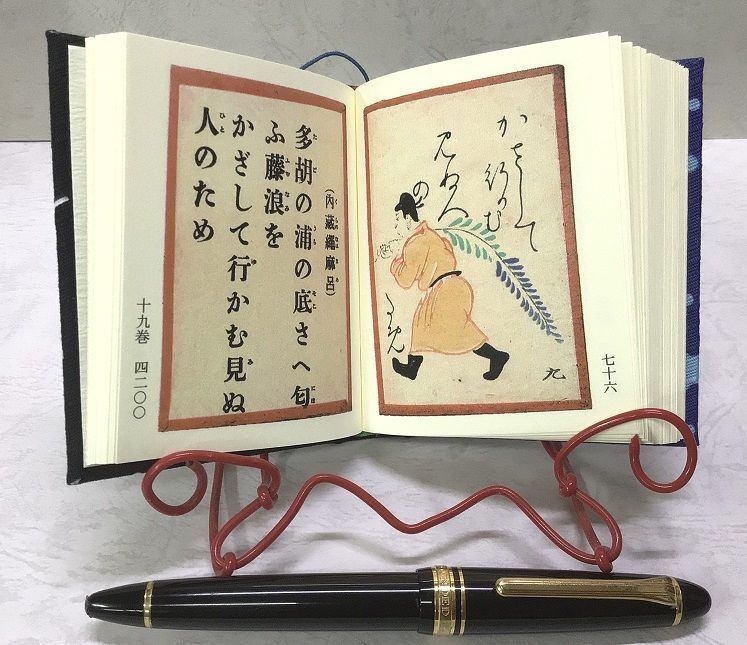 かさして行かむ
見ぬ人
の
九
七十六
(内蔵繩麻呂)
多胡の浦の底さへ匂
ふ藤浪を
かざして行かむ見ぬ
人のため
十九巻 四二〇〇